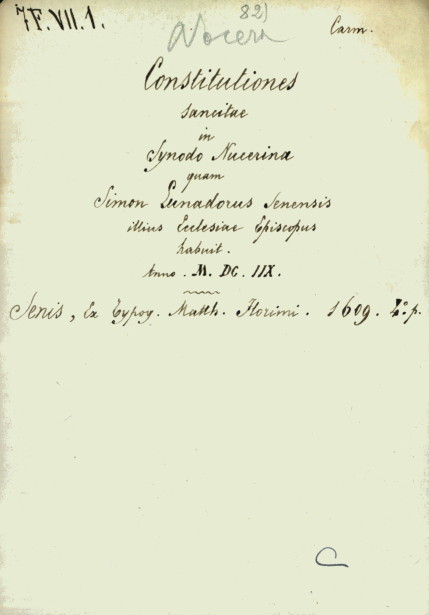 7F.VII.1.
82)
Nocera
Carm.
Constitutiones
sancitae
in
Synodo Nucerina
quam
Simon Lunadorus Senensis
illius Ecclesiae Episcopus
habuit.
Anno . M. DC. IIX.
Senis, Ex Typog. Matth. Florimi. 1609. 4.° p.
C